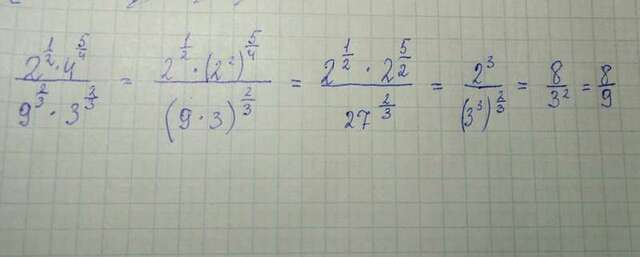 \frac{2^{\frac{1}{2}} \cdot 4^{\frac{5}{4}}}{9^{\frac{2}{3}} \cdot 3^{\frac{2}{3}}} = \frac{2^{\frac{1}{2}} \cdot (2^2)^{\frac{5}{4}}}{(9 \cdot 3)^{\frac{2}{3}}} = \frac{2^{\frac{1}{2}} \cdot 2^{\frac{5}{2}}}{27^{\frac{2}{3}}} = \frac{2^3}{(3^3)^{\frac{2}{3}}} = \frac{8}{3^2} = \frac{8}{9}